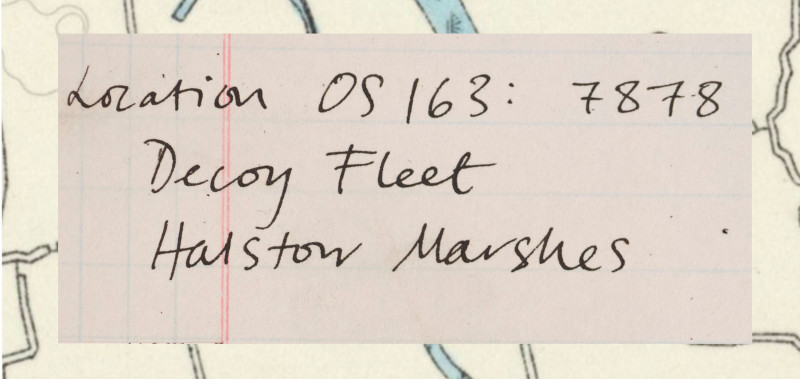 Location OS 163: 7878
Decoy Fleet
Halstow Marshes